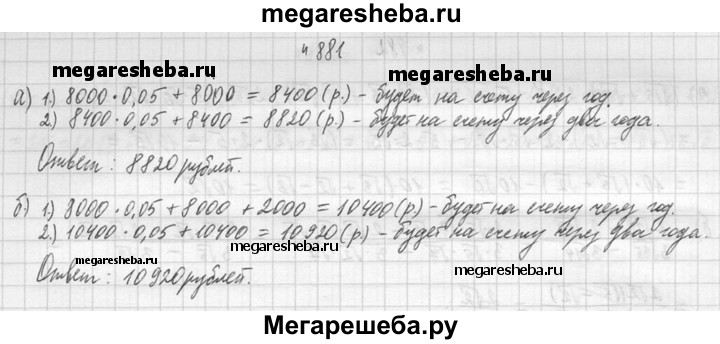 megaresheba.ru
н 881
megaresheba.ru
megaresheba.ru
а) 1) 8000 · 0,05 + 8000 = 8400 (р.) - будет на счету через год.
2) 8400 · 0,05 + 8400 = 8820 (р.) - будет на счету через два года.
Ответ: 8820 рублей.
б) 1) 8000 · 0,05 + 8000 + 2000 = 10400 (р) - будет на счету через год.
2.) 10400 · 0,05 + 10400 = 10920 (р) - будет на счету через два года.
megaresheba.ru
megaresheba.ru
Ответ: 10920 рублей.
Мегарешеба.ру